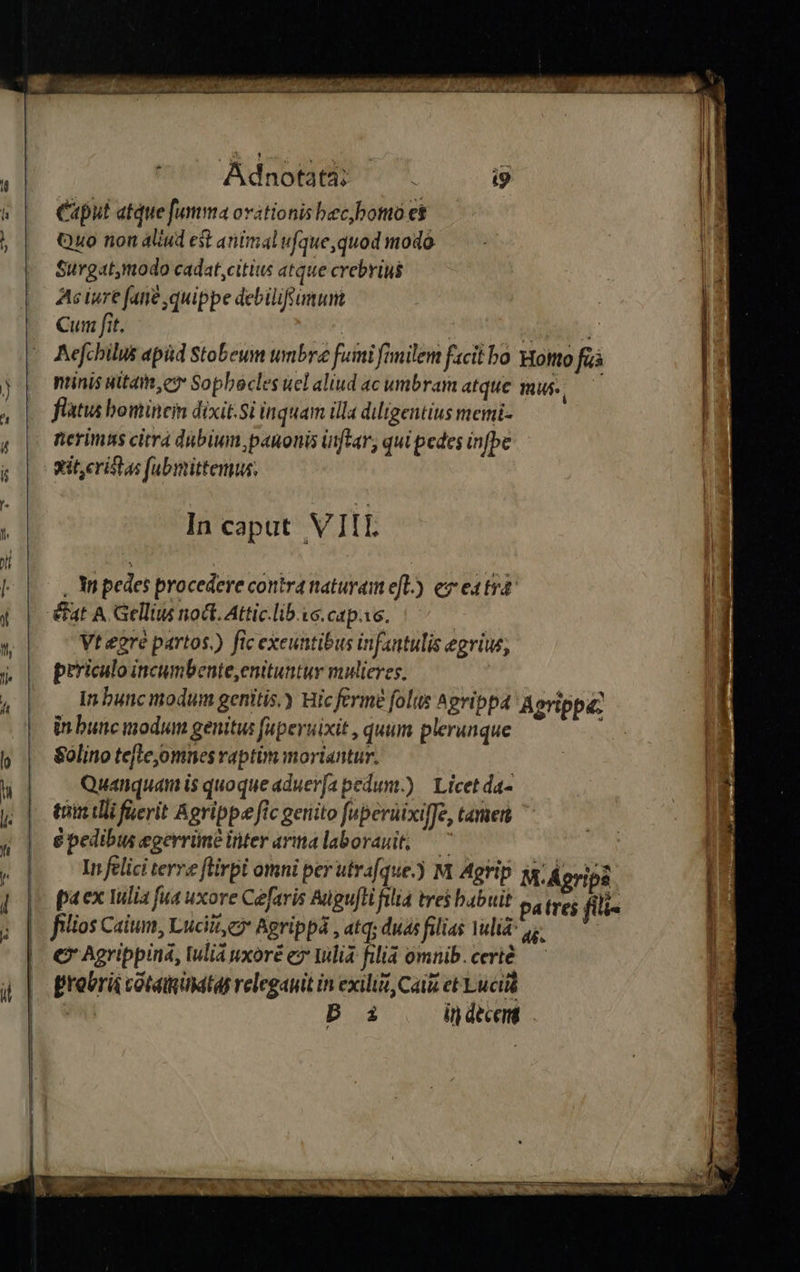 Adnotata: 19
Caput atque summa orationis hæc, homo est
Quo non aliud est animal usque, quod modò
Surgat, modo cadat, citius atque crebrius
Ac iure sanè, quippe debilißimum
Cum sit.
Aeschilus apud Stobeum umbræ fumi similem facit ho Homo fūi
minis uitam, & Sophocles uel aliud ac umbram atque mus.
flatus hominem dixit. Si inquam illa diligentius memi-
nerimus citrà dubium, pauonis instar, qui pedes inspe
xit, cristas submittemus.
In caput VIII.
In pedes procedere contra naturam est.) & ea tra
ctat A. Gellius noct. Attic. lib. 16. cap. 16.
Vt ægrè partos.) sic exeuntibus infantulis ægrius,
periculo incumbente, enituntur mulieres.
In hunc modum genitis.) Hic fermè solus Agrippa Agrippæ.
in hunc modum genitus superuixit, quum plerunque
Solino teste, omnes raptim moriantur.
Quanquam is quoque aduersa pedum.) Licet da-
tum illi fuerit Agrippæ sic genito superuixisse, tamen
è pedibus ægerrimè inter arma laborauit.
Infelici terræ stirpi omni per utrasque.) M. Agrip M. Agripā
pa ex Iulia sua uxore Cæsaris Augusti filia tres habuit patres filie
filios Caium, Luciū, & Agrippā, atq; duas filias Iuliā
& Agrippinā, Iuliā uxorē & Iuliā filiā omnib. certè
probris cōtaminatas relegauit in exiliū, Caiū et Luciū
B 2 in decem